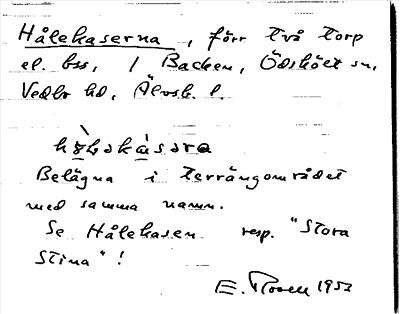 Hålekaserna, förr två torp
el. bss, / Backen, Ödskölt sn.
Vedbo hd, Älvsb. l.
Belägna i terrängområdet
med samma namn.
Se Hålekasen resp. "Stora
Stina"!
E. Rosell 1953